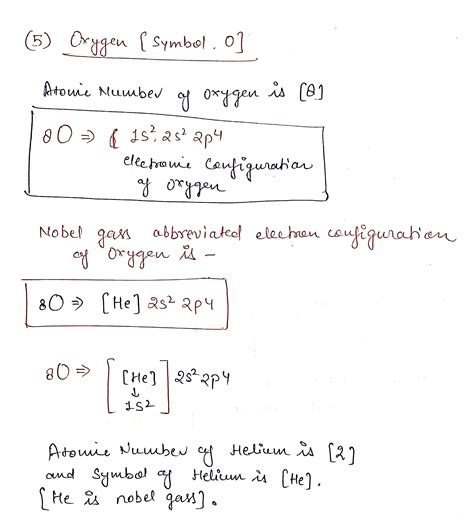 (5) Oxygen [Symbol. O]
Atomic Number of oxygen is [8]
8O ⇒ 1s². 2s² 2p4
electronic configuration
of oxygen
Nobel gass abbreviated electron configuration
of Oxygen is -
8O ⇒ [He] 2s² 2p4
8O ⇒ [[He]] 2s² 2p4
↓
1s2
Atomic Number of Helium is [2]
and Symbol of Helium is [He].
[He is nobel gass].